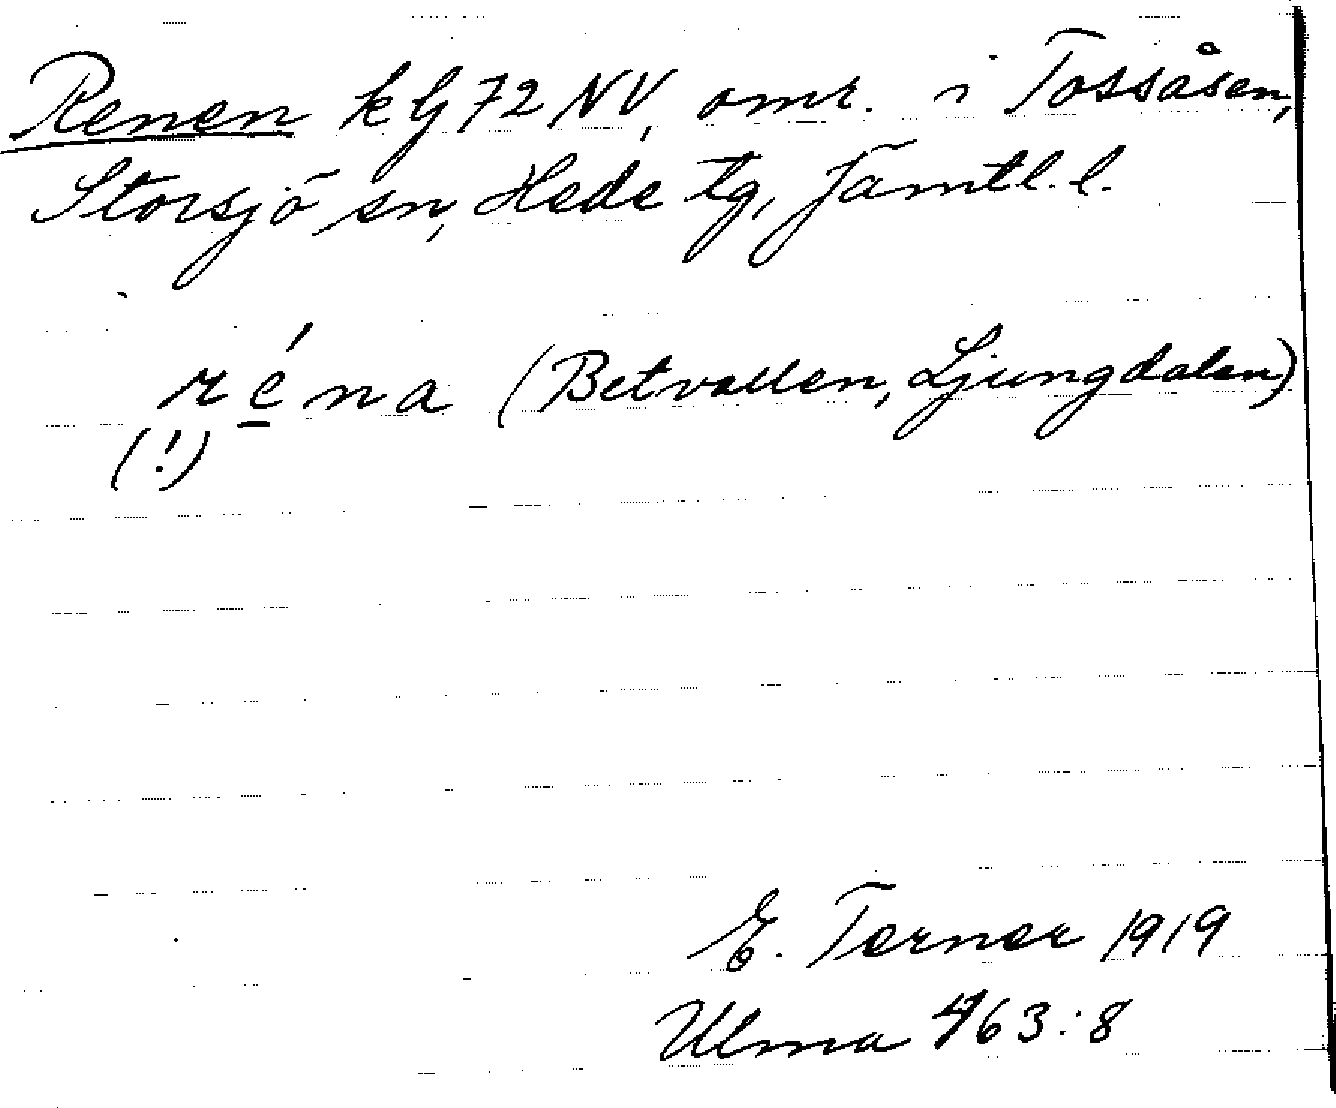 Renen kg 72 NV, omr. i Tossåsen,
Storsjö sn, Hede tg, Jämtl. l.
réna (Betvallen, Ljungdalen)
(!)
E. Terner 1919
Ulma 463:8